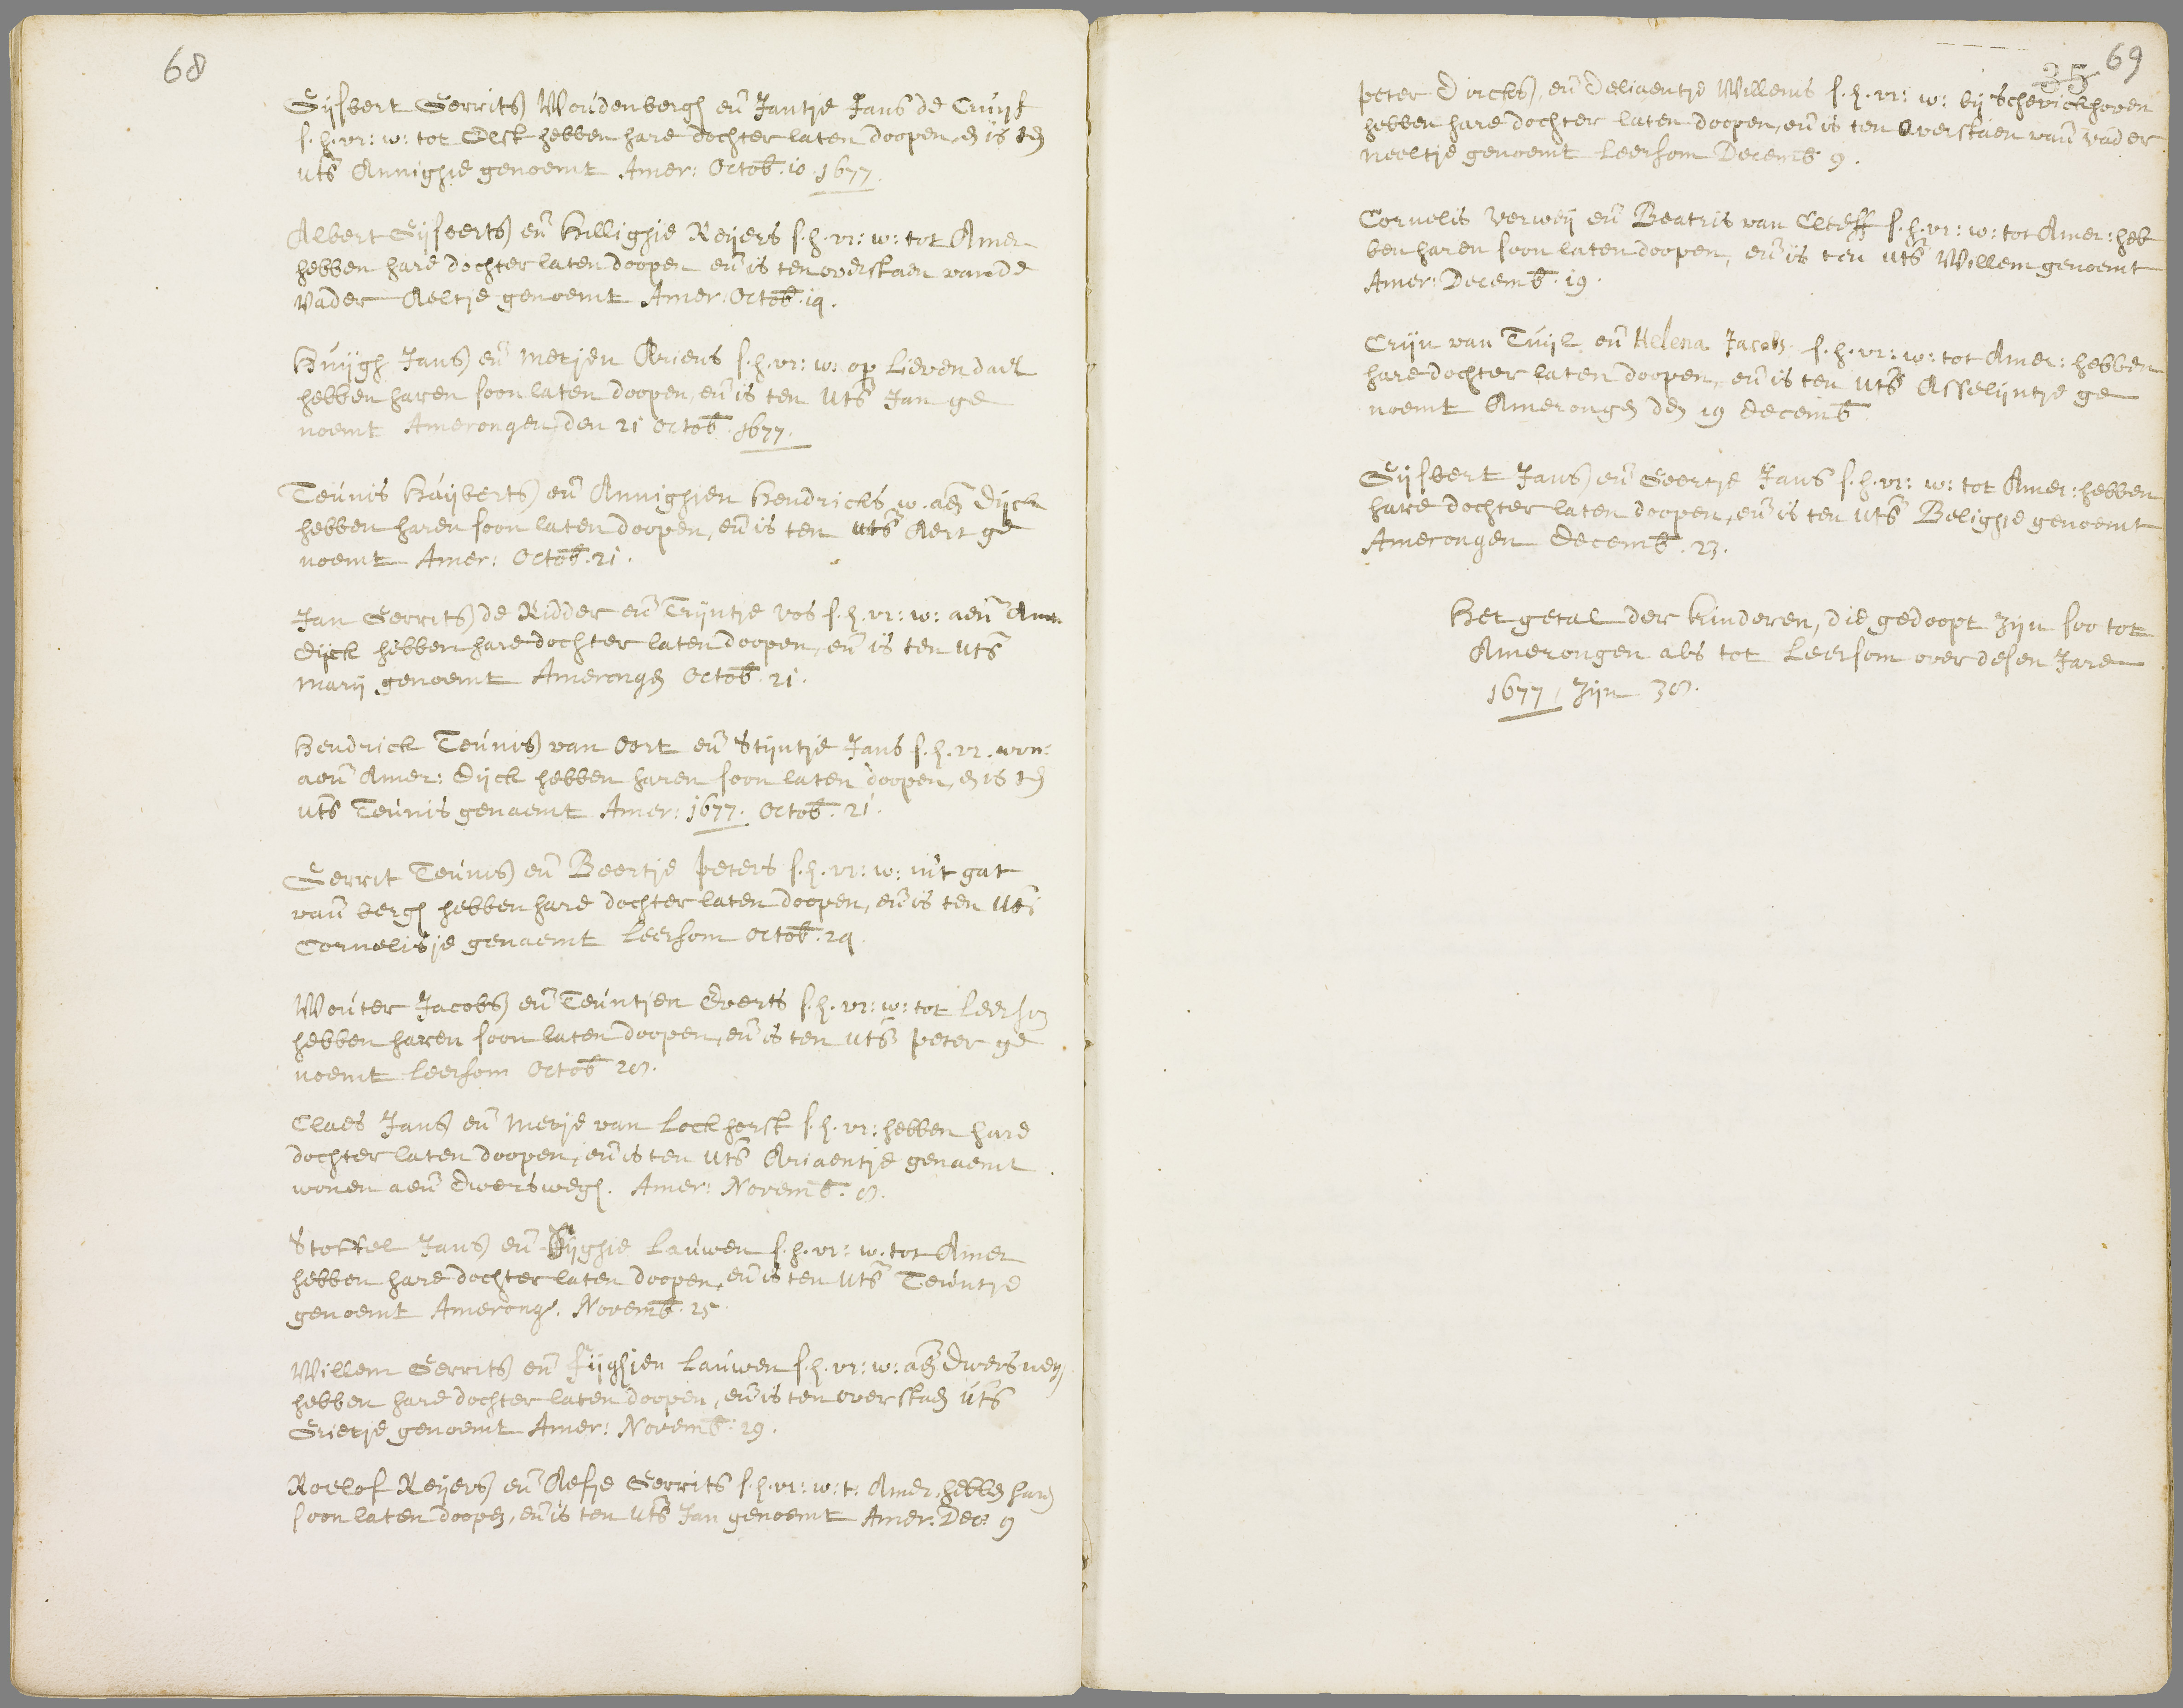 68
Gijsbert Gerrits Woudenbergh en Jantje Jans de Cruijf
s.h.vr: w: tot Elst hebben hare dochter laten doopen, en is ten
uts Annighie genoemt Amer: Octob. 10. 1677.
Albert Gijsberts en Hillighie Reijers s.h.vr: w: tot Amer
hebben hare dochter laten doopen en is ten overstaen van de
Vader Aeltje genoemt Amer: Octob. 19.
Huijgh Jans en Merjen Ariens s.h.vr: w: op Lievendael
hebben haren soon laten doopen, en is ten uts Jan ge
noemt Amerongen den 21 Octob. 1677.
Teunis Huijberts en Annighien Hendricks w. aen Dijck
hebben haren soon laten doopen, en is ten uts Aert ge
noemt Amer: Octob. 21.
Jan Gerrits de Ridder en Trijntje Vos s.h.vr: w: aen Amer
dijck hebben hare dochter laten doopen, en is ten uts
Marij genoemt Amerongen Octob. 21.
Hendrick Teunis van Oort en Stijntje Jans s.h.vr. won:
aen Amer: Dijck hebben haren soon laten doopen, en is ten
uts Teunis genaemt Amer: 1677. Octob. 21.
Gerrit Teunis en Beertje Peters s.h.vr: w: int gat
van bergh hebben hare dochter laten doopen, en is ten uts
Cornelisje genaemt Leersom Octob. 29
Wouter Jacobs en Teuntjen Everts s.h.vr: w: tot Leersom
hebben haren soon laten doopen, en is ten uts Peter ge
noemt Leersom Octob 28.
Claes Jans en Merje van Lockhorst s.h.vr: hebben hare
dochter laten doopen, en is ten uts Ariaentje genaemt
wonen aen Dwerswegh. Amer: Novemb. 8.
Stoffel Jans en Fijghie Lauwen s.h.vr: w. tot Amer
hebben hare dochter laten doopen, en is ten uts Teuntje
genoemt Amerong. Novemb. 25
Willem Gerrits en Fijghien Lauwen s.h.vr: w: aen Dwerswegh
hebben hare dochter laten doopen, en is ten overstaen uts
Grietje genoemt Amer: Novemb. 29.
Roelof Reijers en Aefje Gerrits s.h.vr: w: t: Amer. hebben haren
soon laten doopen, en is ten uts Jan genoemt Amer: Dec: 9
35 69
Peter Dircks, en Deliaentje Willems s.h.vr: w: bij Scherickhoven
hebben hare dochter laten doopen, en is ten overstaen van Vader
Neeltje genoemt Leersom Decemb. 9.
Cornelis Verweij en Beatris van Eltryff s.h.vr: w: tot Amer: heb
ben haren soon laten doopen, en is ten uts Willem genoemt
Amer: Decemb. 19.
Crijn van Tuijl en Helena Jacobs s.h.vr: w: tot Amer: hebben
hare dochter laten doopen, en is ten uts Asselijntje ge
noemt Amerongen den 19 Decemb
Gijsbert Jans en Geertje Jans s.h.vr: w: tot Amer: hebben
hare dochter laten doopen, en is ten uts Belighie genoemt
Amerongen Decemb. 23.
Het getal der kinderen, die gedoopt zijn soo tot
Amerongen als tot Leersom over desen Jare
1677, zijn 38.